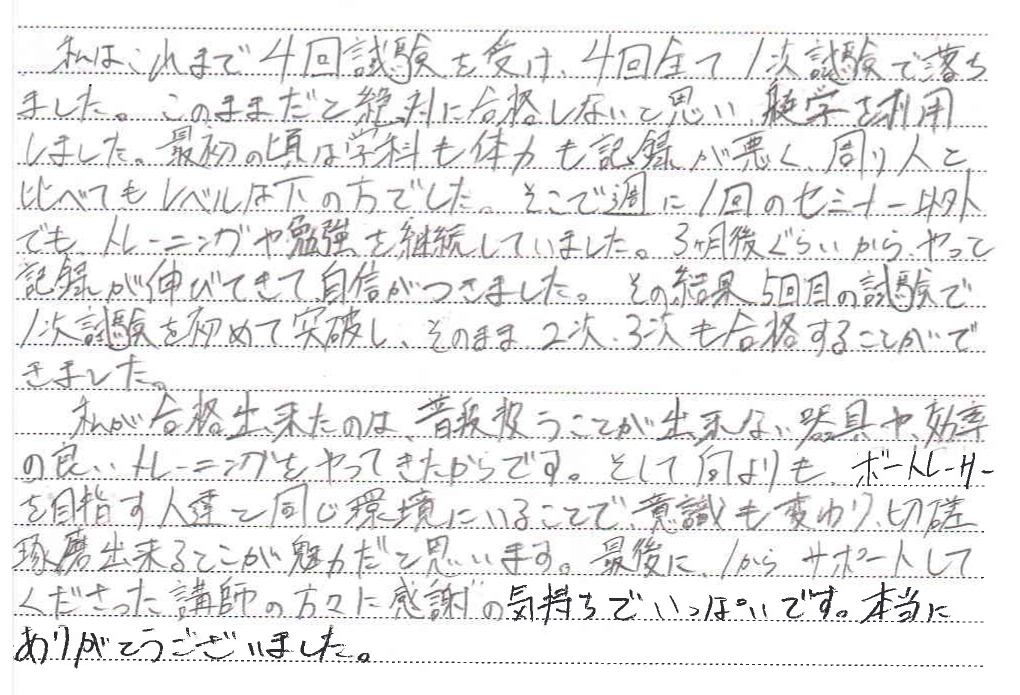 私はこれまで4回試験を受け、4回全て1次試験で落ち
ました。このままだと絶対に合格しないと思い、艇学を利用
しました。最初の頃は学科も体力も記録が悪く、周り人と
比べてもレベルは下の方でした。そこで週に1回のセミナー以外
でも、トレーニングや勉強を継続していました。3ヶ月後ぐらいから、やっと
記録が伸びてきて自信がつきました。その結果5回目の試験で
1次試験を初めて突破し、そのまま2次、3次も合格することがで
きました。
私が合格出来たのは、普段扱うことが出来ない器具や、効率
の良いトレーニングをやってきたからです。そして何よりも、ボートレーサー
を目指す人達と同じ環境にいることで、意識も変わり、切磋
琢磨出来るとこが魅力だと思います。最後に、1からサポートして
くださった講師の方々に感謝の気持ちでいっぱいです。本当に
ありがとうございました。